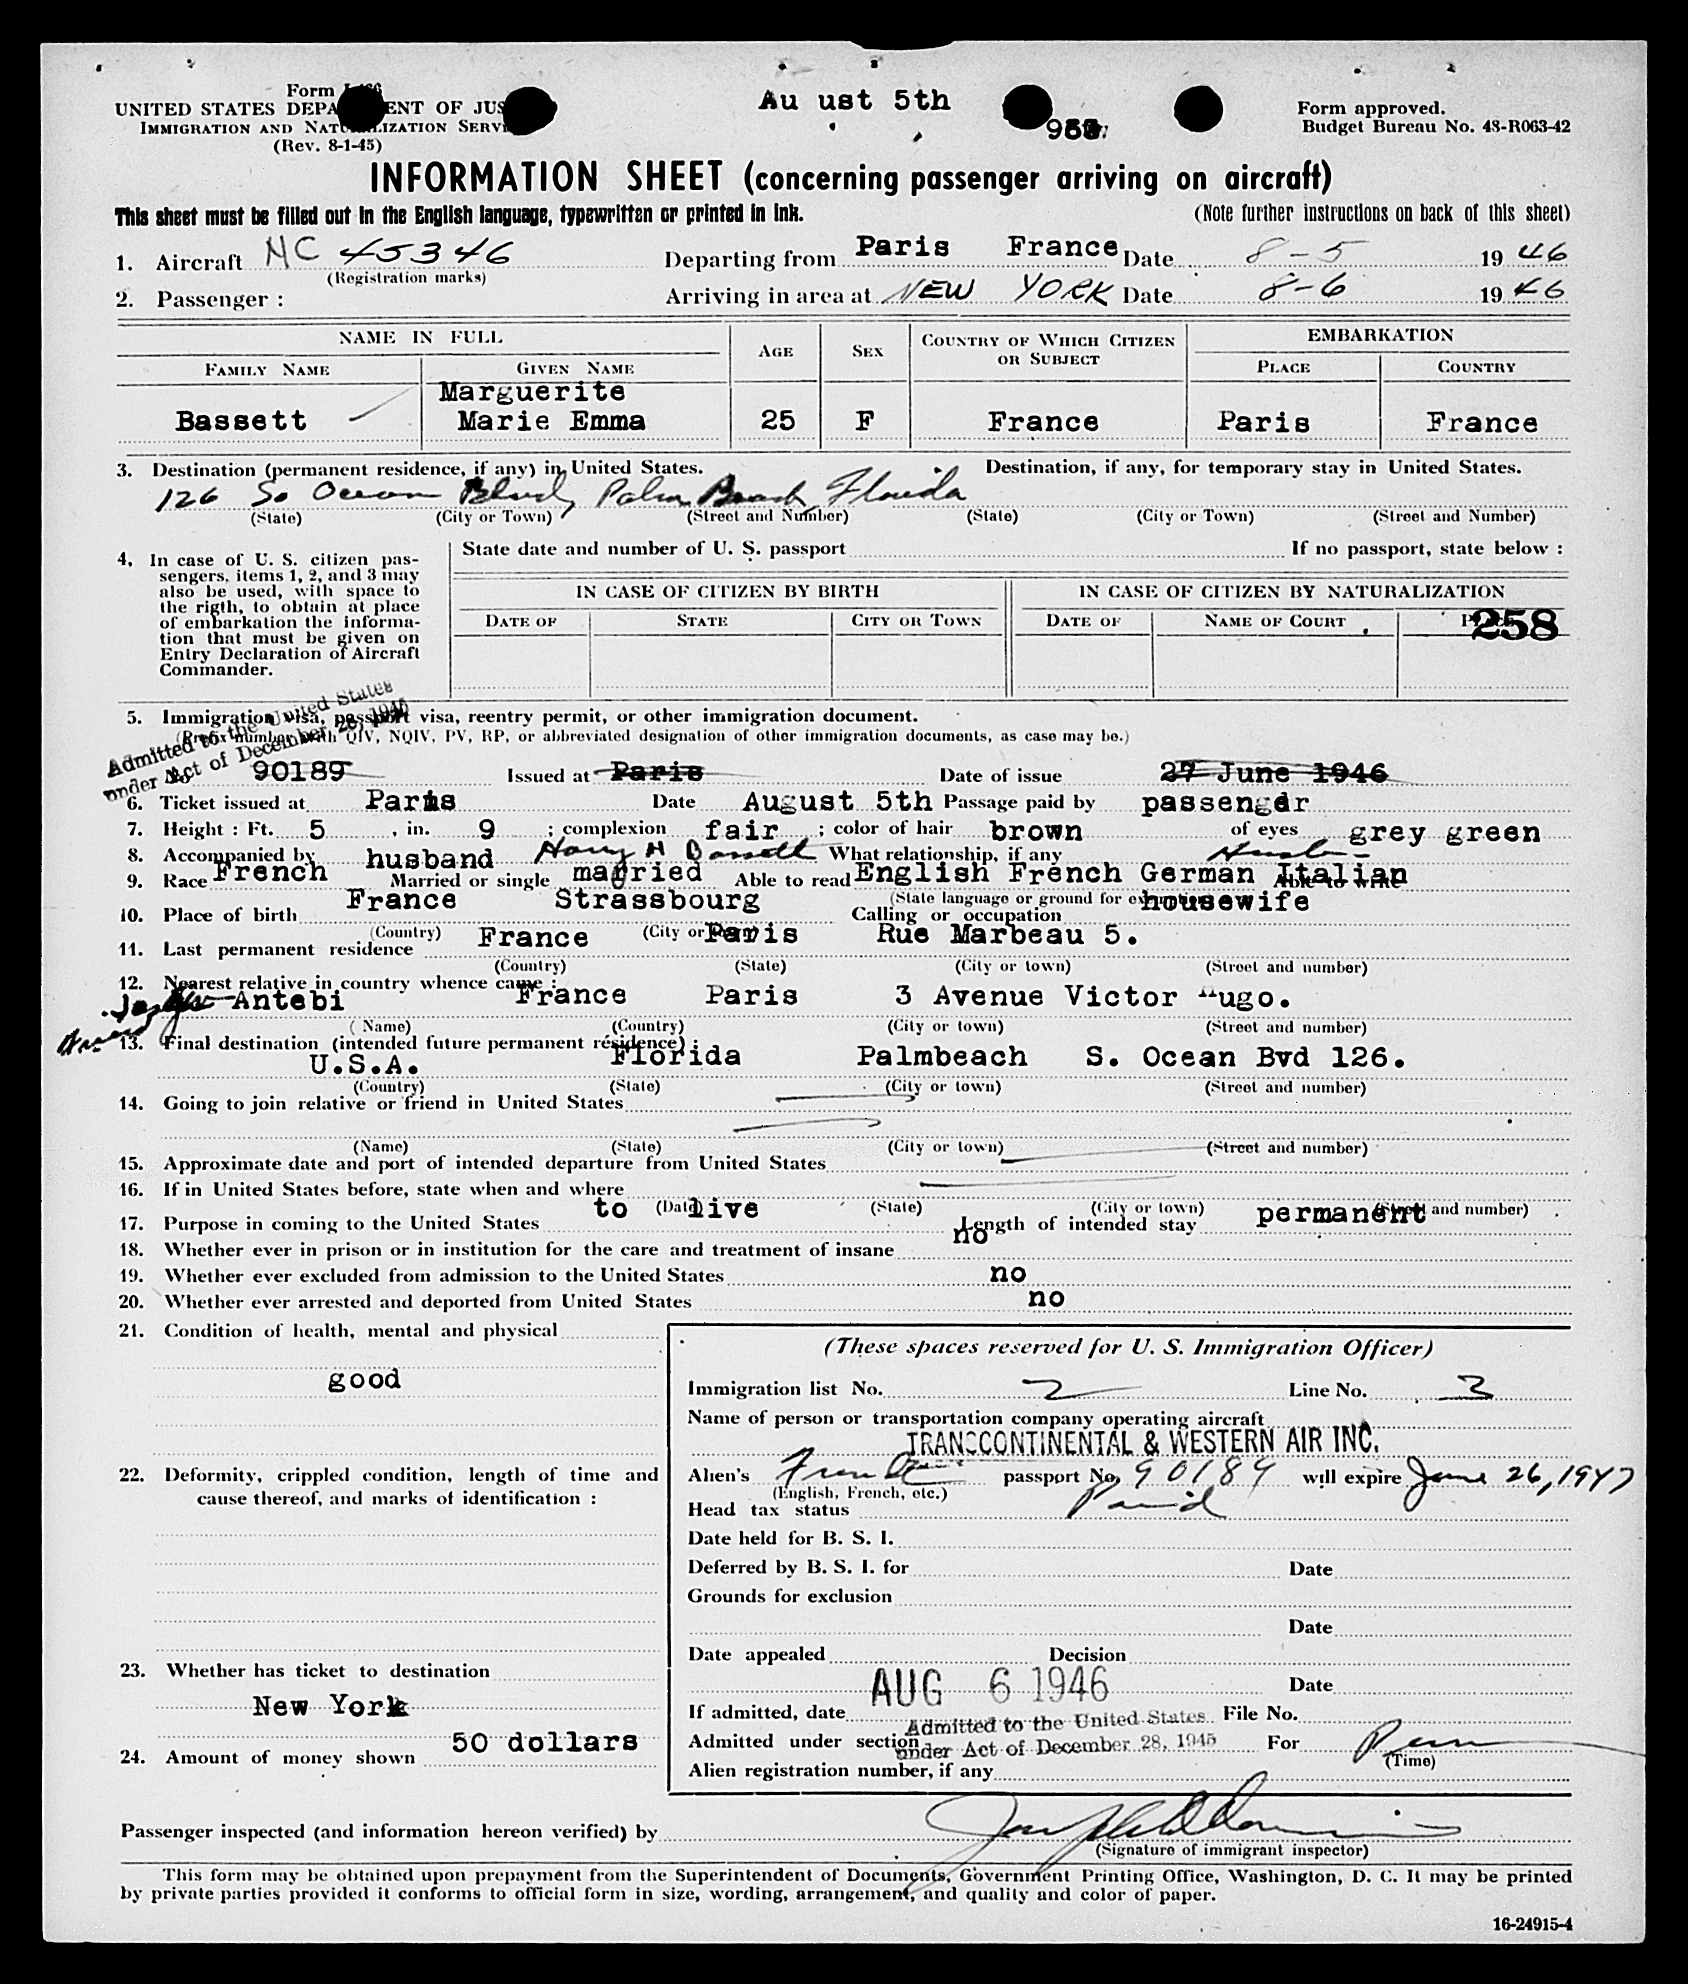 Form I-466
UNITED STATES DEPARTMENT OF JUSTICE
IMMIGRATION AND NATURALIZATION SERVICE
(Rev. 8-1-45)
Au ust 5th
Form approved.
Budget Bureau No. 43-R063-42
INFORMATION SHEET (concerning passenger arriving on aircraft)
This sheet must be filled out in the English language, typewritten or printed in ink.
(Note further instructions on back of this sheet)
1. Aircraft NC 45346 Departing from Paris France Date 8-5 1946
(Registration marks)
2. Passenger : Arriving in area at NEW YORK Date 8-6 1946
NAME IN FULL AGE SEX COUNTRY OF WHICH CITIZEN OR SUBJECT EMBARKATION
FAMILY NAME GIVEN NAME PLACE COUNTRY
Marguerite
Bassett Marie Emma 25 F France Paris France
3. Destination (permanent residence, if any) in United States. Destination, if any, for temporary stay in United States.
126 So Ocean Blvd, Palm Beach, Florida
(State) (City or Town) (Street and Number) (State) (City or Town) (Street and Number)
4. In case of U. S. citizen pas-
sengers, items 1, 2, and 3 may
also be used, with space to
the rigth, to obtain at place
of embarkation the informa-
tion that must be given on
Entry Declaration of Aircraft
Commander.
State date and number of U. S. passport If no passport, state below :
IN CASE OF CITIZEN BY BIRTH IN CASE OF CITIZEN BY NATURALIZATION
DATE OF STATE CITY OR TOWN DATE OF NAME OF COURT PLACE
258
5. Immigration visa, passport visa, reentry permit, or other immigration document.
(Prefix number with QIV, NQIV, PV, RP, or abbreviated designation of other immigration documents, as case may be.)
Admitted to the United States
under Act of December 28, 1945
No. 90189 Issued at Paris Date of issue 27 June 1946
6. Ticket issued at Paris Date August 5th Passage paid by passenger
7. Height : Ft. 5 , in. 9 ; complexion fair ; color of hair brown of eyes grey green
8. Accompanied by husband Harry H Bassett What relationship, if any Husb
9. Race French Married or single married Able to read English French German Italian Able to write
(State language or ground for exemption)
10. Place of birth France Strassbourg Calling or occupation housewife
(Country) (City or town)
11. Last permanent residence France Paris Rue Marbeau 5.
(Country) (State) (City or town) (Street and number)
12. Nearest relative in country whence came :
Antebi France Paris 3 Avenue Victor Hugo.
(Name) (Country) (City or town) (Street and number)
13. Final destination (intended future permanent residence) :
U.S.A. Florida Palmbeach S. Ocean Bvd 126.
(Country) (State) (City or town) (Street and number)
14. Going to join relative or friend in United States
(Name) (State) (City or town) (Street and number)
15. Approximate date and port of intended departure from United States
16. If in United States before, state when and where
(Date) (State) (City or town) (Street and number)
17. Purpose in coming to the United States to live Length of intended stay permanent
18. Whether ever in prison or in institution for the care and treatment of insane no
19. Whether ever excluded from admission to the United States no
20. Whether ever arrested and deported from United States no
21. Condition of health, mental and physical
good
22. Deformity, crippled condition, length of time and
cause thereof, and marks of identification :
23. Whether has ticket to destination
New York
24. Amount of money shown 50 dollars
(These spaces reserved for U. S. Immigration Officer)
Immigration list No. 2 Line No. 3
Name of person or transportation company operating aircraft
TRANSCONTINENTAL & WESTERN AIR INC.
Alien's French passport No. 90189 will expire June 26, 1947
(English, French, etc.)
Head tax status Paid
Date held for B. S. I.
Deferred by B. S. I. for Date
Grounds for exclusion
Date
Date appealed Decision
Date
AUG 6 1946
If admitted, date File No.
Admitted to the United States
Admitted under section under Act of December 28, 1945 For Perm
(Time)
Alien registration number, if any
Passenger inspected (and information hereon verified) by
(Signature of immigrant inspector)
This form may be obtained upon prepayment from the Superintendent of Documents, Government Printing Office, Washington, D. C. It may be printed
by private parties provided it conforms to official form in size, wording, arrangement, and quality and color of paper.
16-24915-4